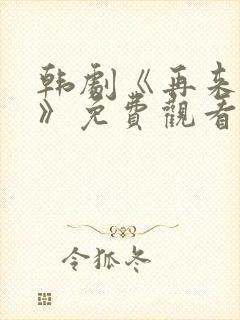 韩劇《再来
》免費觀看
令狐冬